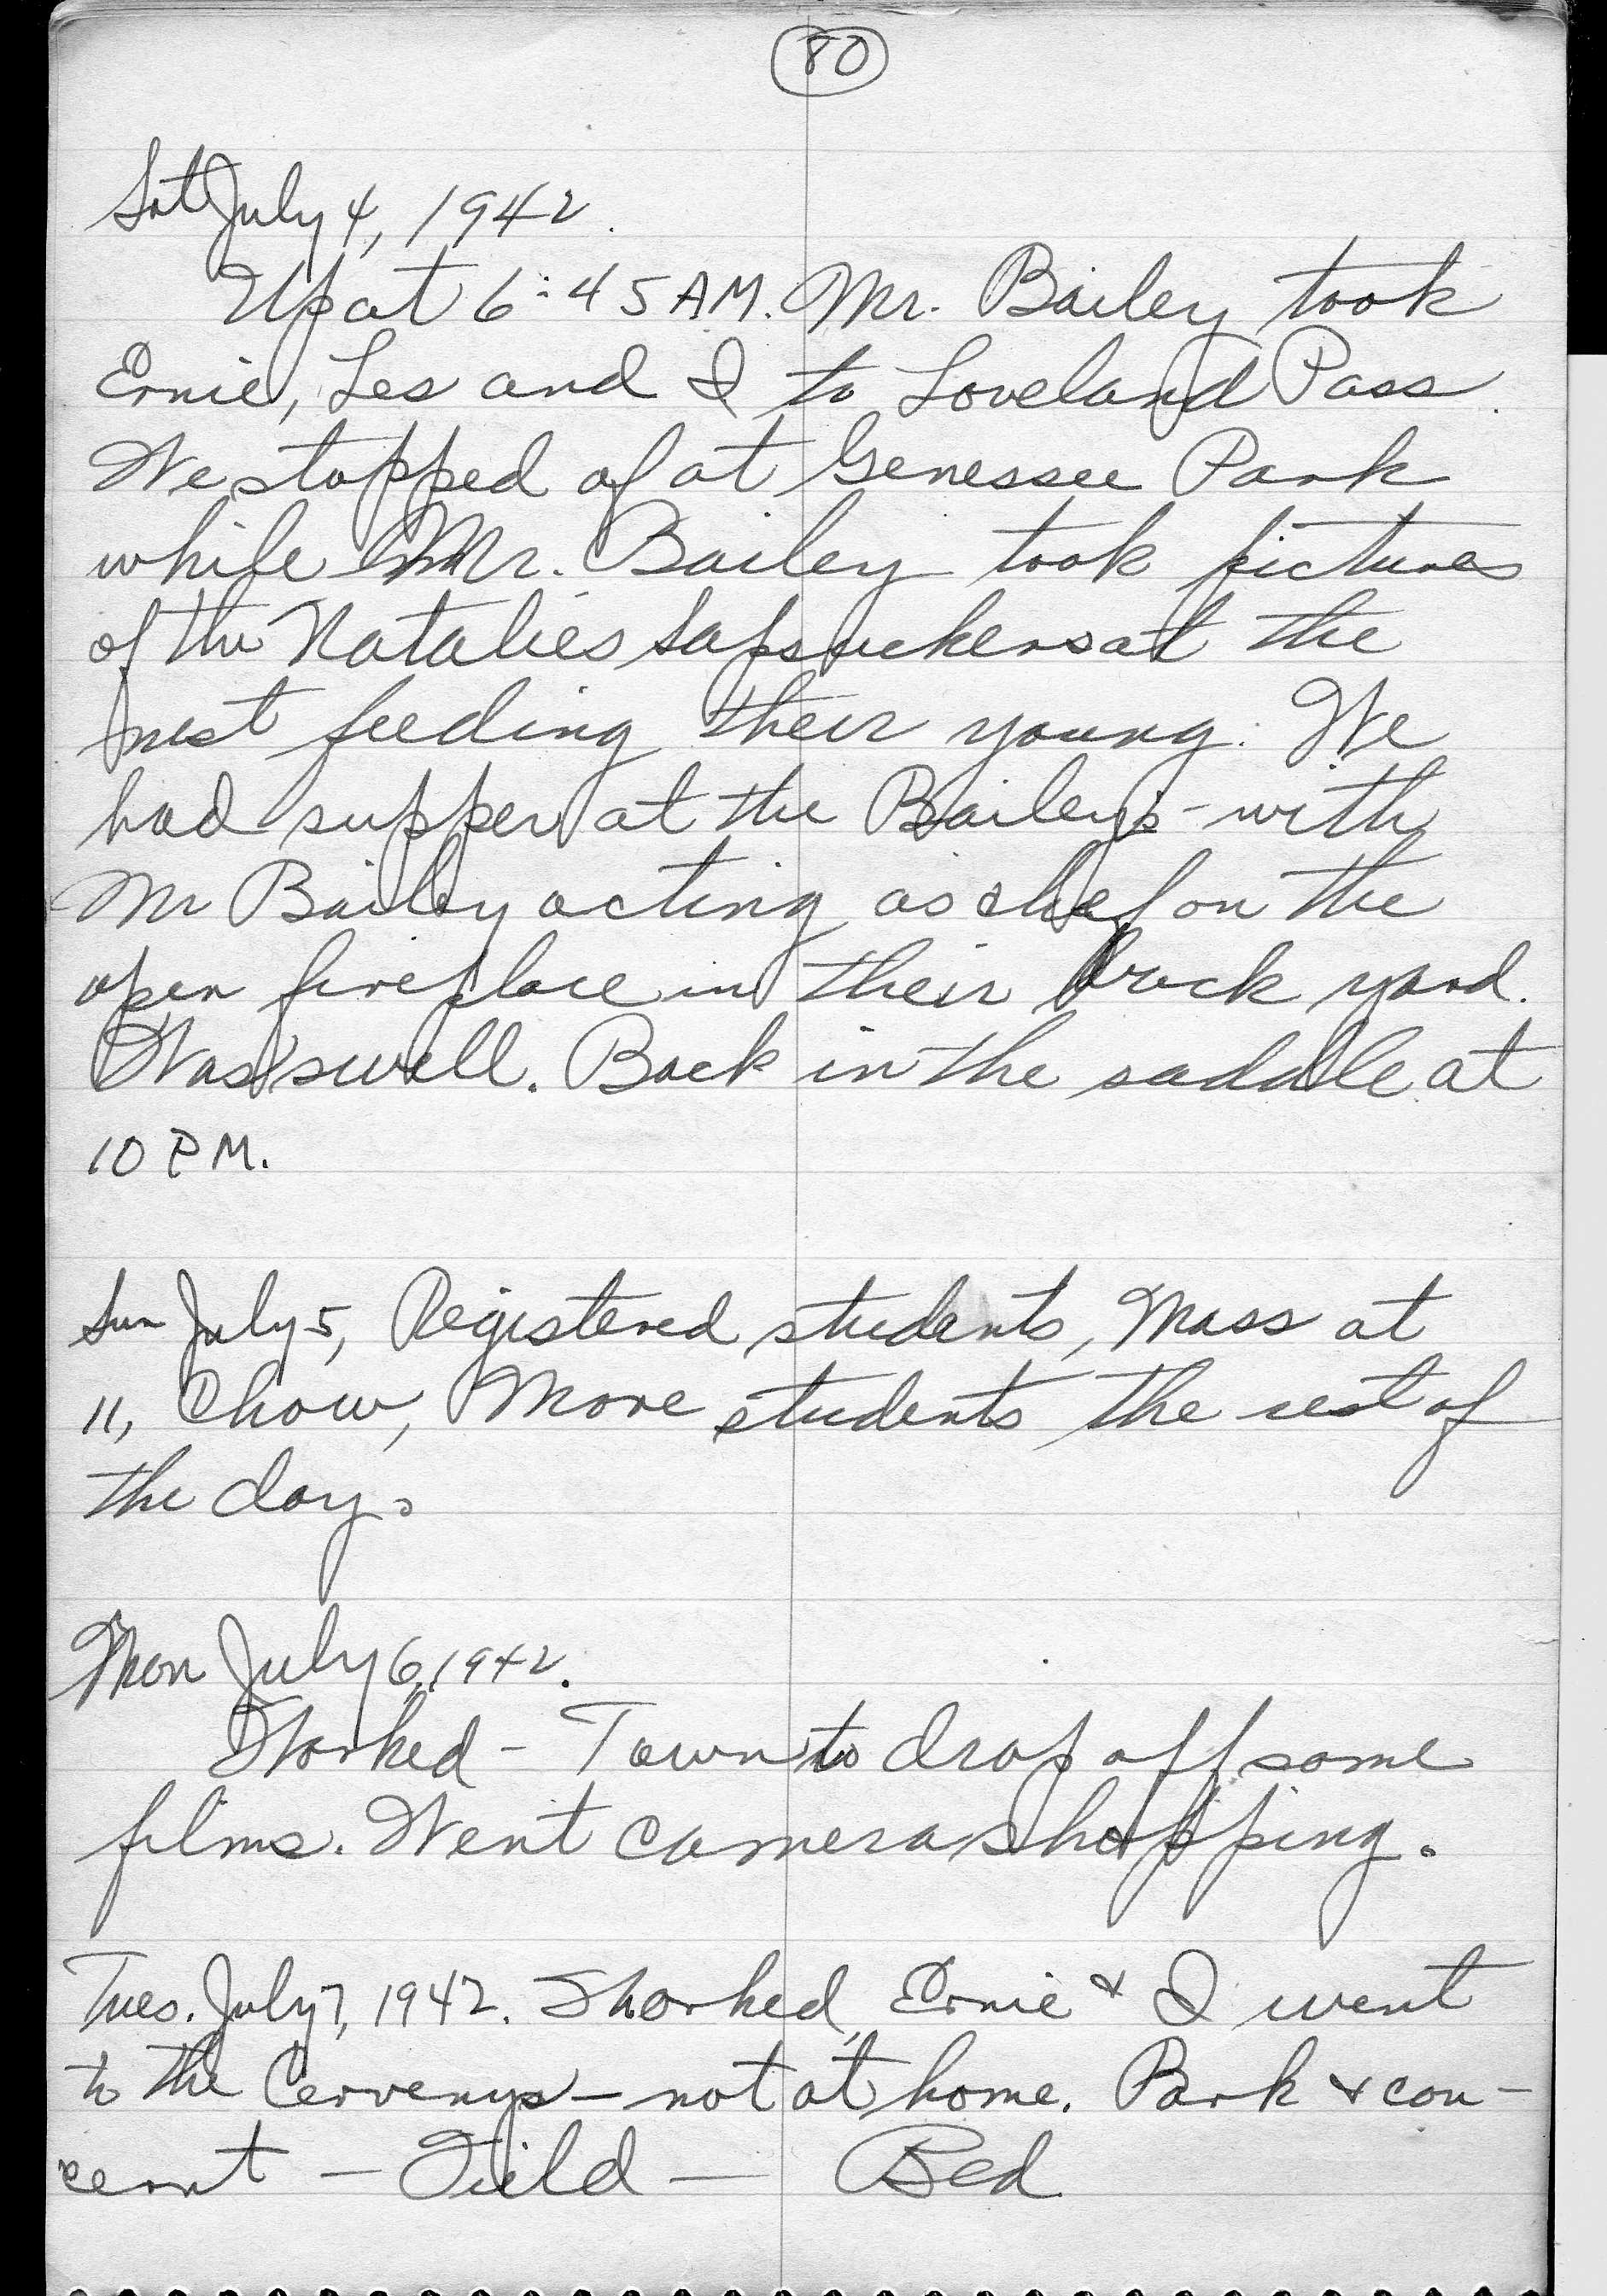 80
Sat July 4, 1942.
Up at 6:45 AM. Mr. Bailey took
Ernie, Les and I to Loveland Pass.
We stopped of at Genessee Park
while Mr. Bailey took pictures
of the Natalies Sapsuckers at the
nest feeding their young. We
had supper at the Bailey's - with
Mr Bailey acting as chef on the
open fireplace in their back yard.
Was swell. Back in the saddle at
10 PM.
Sun July 5, Registered students, Mass at
11, Chow, More students the rest of
the day.
Mon July 6, 1942.
Worked - Town to drop off some
films. Went camera shopping.
Tues. July 7, 1942. Worked, Ernie & I went
to the Cervenys - not at home. Park & con-
cernt - Field - Bed